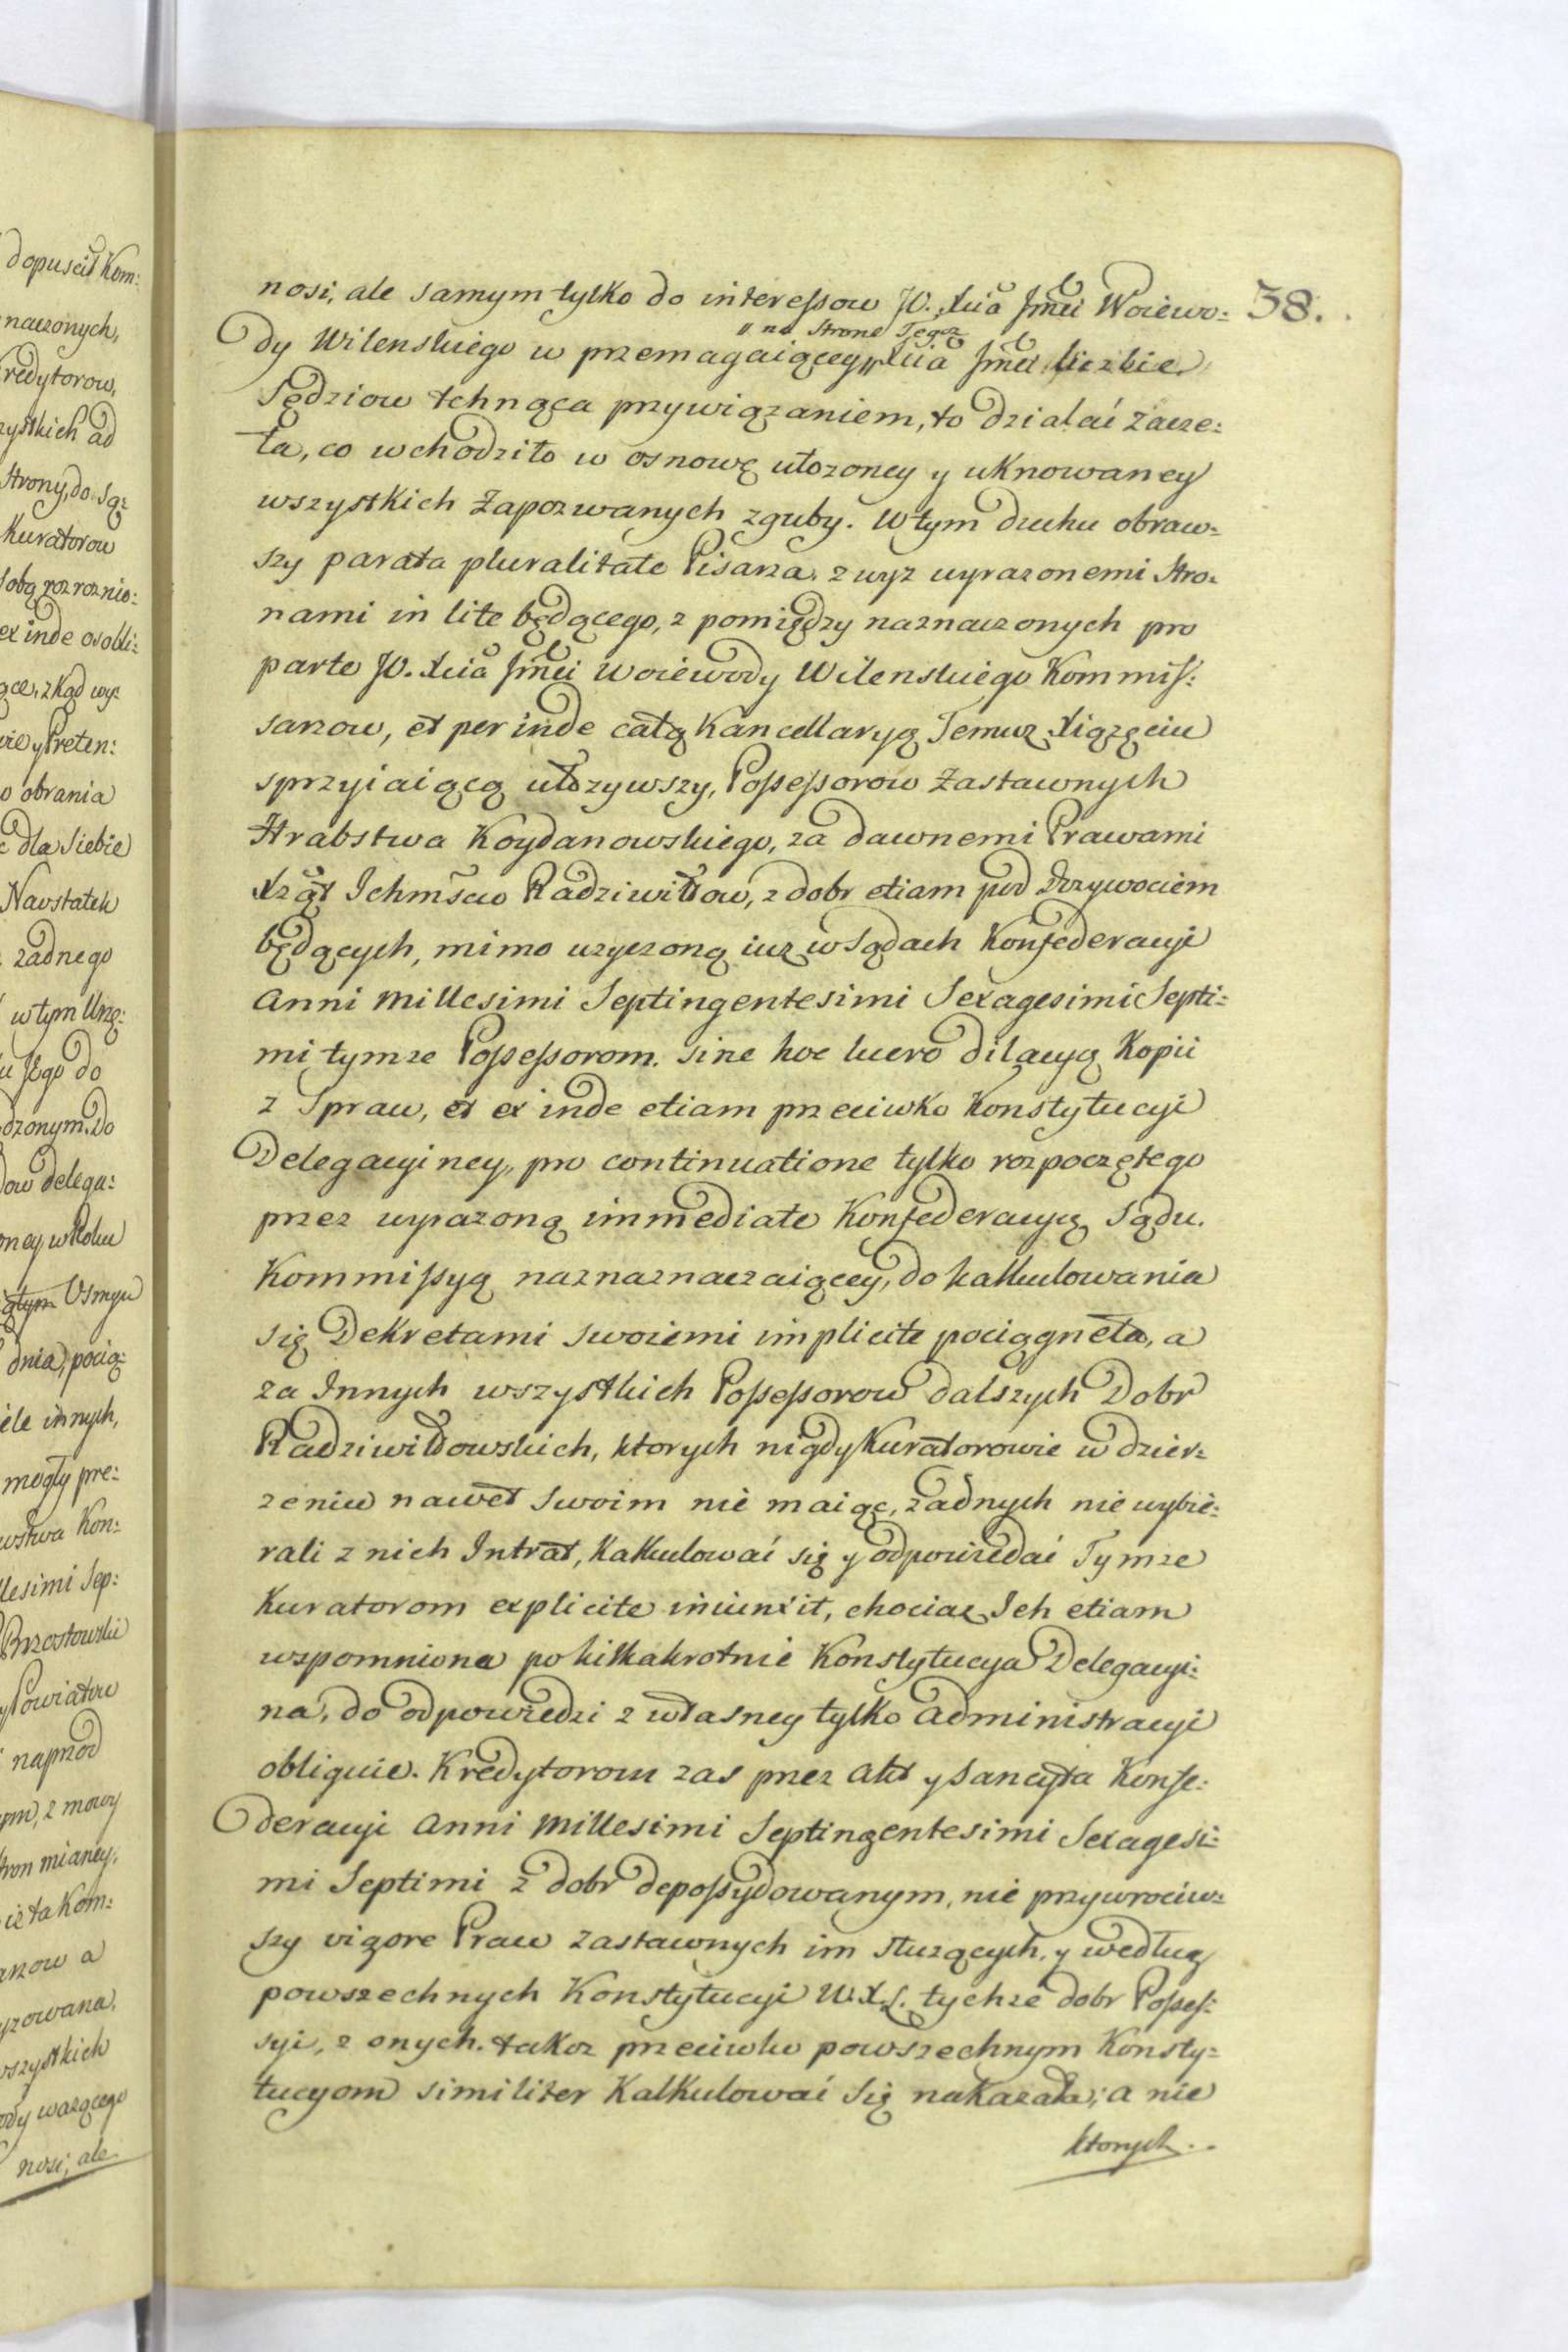 dopuscił Kom:
naczonych,
Kredytorow,
zystkich ad
Strony, do Są:
Kuratorow
sobą rozroznio:
ex inde osobli:
ące, zkąd wy:
y Preten:
o obrania
dla Siebie
Naostatek
zadnego
w tym Urzę:
Jego do
dzonym. Do
dow delega:
oney, w Roku
Osmym
dnia, pocią:
ele innych,
mogły pre:
wstwa Kon:
llesimi Sep:
Brzostowski
y Powiatow
naprzod
ym, z mowy
mianey,
ta Kom:
arzow a
yzowana,
wszystkich
ody wazącego
nosi; ale
38.
nosi, ale samym tylko do interessow JO. Xcia Jmci Woiewo:
dy Wilenskiego w przemagaiącey „ Xcia Jmci liczbie
„ na Strone Tegoz
Sędziow tchnąca przywiązaniem, to dzialać zacze:
ła, co wchodziło w osnowę ułozoney y uknowaney
wszystkich Zapozwanych zguby. W tym duchu obraw:
szy parata pluralitate Pisarza, z wyz wyrazonemi Stro:
nami in lite będącego, z pomiędzy naznaczonych pro
parte JO. Xcia Jmci Woiewody Wilenskiego Kommis:
sarzow, et per inde całą Kancellaryą Temuz Xiązęciu
sprzyiaiącą ułozywszy, Possessorow Zastawnych
Hrabstwa Koydanowskiego, za dawnemi Prawami
Xząt Ichmsciow Radziwiłłow, z dobr etiam pod Dozywociem
będących, mimo uzyczoną iuz w Sądach Konfederacyi
Anni Millesimi Septingentesimi Sexagesimi Septi:
mi tymze Possessorom. sine hoc lucro dilacyą Kopii
z Spraw, et ex inde etiam przeciwko Konstytucyi
Delegacyiney, pro continuatione tylko rozpoczętego
przez wyrazoną immediate Konfederacyą Sądu.
Kommissyą naznaznaczaiącey, do kalkulowania
się Dekretami swoiemi implicite pociągneła, a
za Innych wszystkich Possessorow dalszych Dobr
Radziwiłłowskich, ktorych nigdy Kuratorowie w dzier:
zeniu nawet swoim nie maiąc, zadnych nie wybie:
rali z nich Intrat, kalkulować się y odpowiedać Tymze
Kuratorom explicite iniunxit, chociaz Ich etiam
wspomniona po kilkakrotnie Konstytucya Delegacyi:
na, do odpowiedzi z własney tylko administracyi
obliguie. Kredytorom zas przez Akt y Sancyta Konfe:
deracyi Anni Millesimi Septingentesimi Sexagesi:
mi Septimi z dobr depossydowanym, nie przywrociw:
szy vigore Praw zastawnych im słuzących, y według
powszechnych Konstytucyi W.X.L. tychze dobr Posses:
syi, z onych. takoz przeciwko powszechnym Konsty:
tucyom similiter Kalkulować się nakazała; a nie
ktorych..